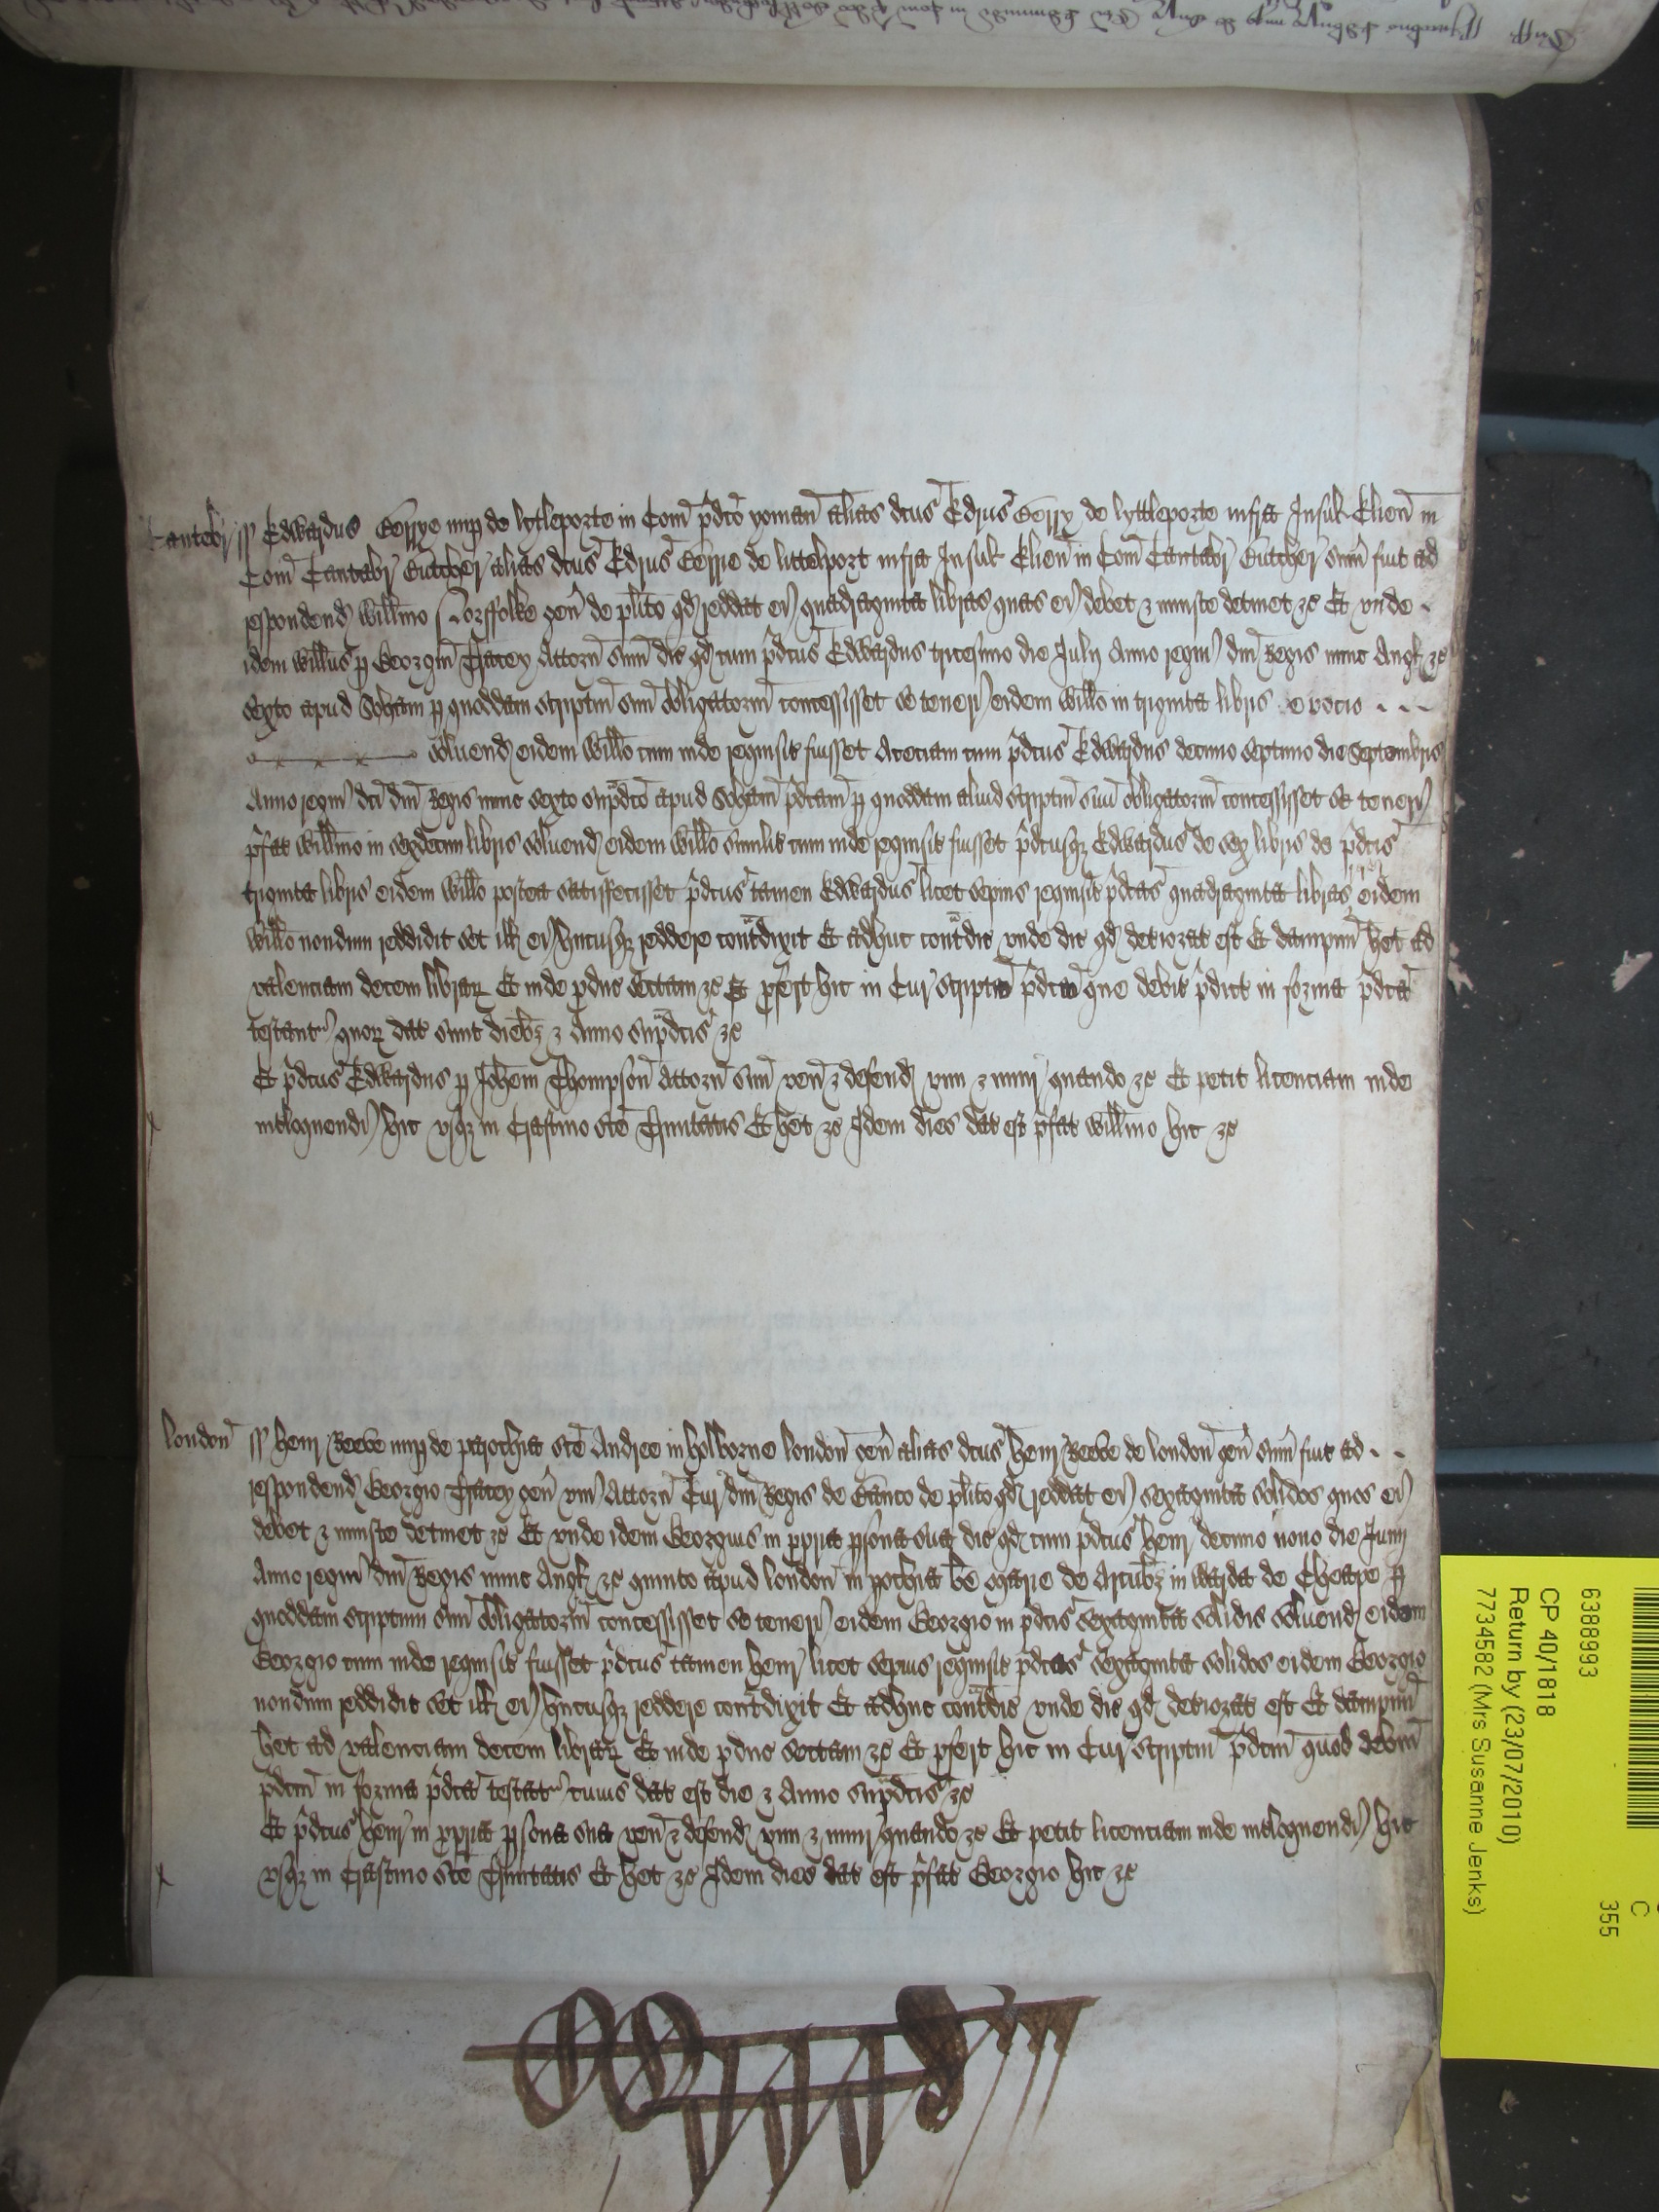 Cantebr ss Edwardus Berrye nup de lytleporte in Com p̄dco yoman alias dcus Edrus Berry de lyttleporte infra Insul Elien in
Com Cantabr Butcher alias dcus Edrus Berrie de littelport infra Insul Elien in Com Cantabr Butcher sum fuit ad
respondend Willmo Norffolke gen de plito qd reddat ei quadraginta libras quas ei debet & iniuste detinet &c Et unde
idem Willus p Georgiu Tracey Attorn suu dic qd cum p̄dcus Edwardus tricesimo die Julij Anno regni dni Regis nunc Angl &c
sexto apud Soham p quoddam scriptu suu obligatoriu concessisset se teneri eidem Willo in triginta libris
solvend eidem Willo cum inde requisit fuisset Aceciam cum p̄dcus Edwardus decimo septimo die Septembris
Anno regni dci dni Regis nunc sexto sup̄dco apud Soham p̄dcam p quoddam aliud scriptu suu obligatoriu concessisset se teneri
p̄fat Willmo in sexdecim libris solvend eidem Willo similit cum inde requisit fuisset p̄dcusq Edwardus de sex libris de p̄dcis
triginta libris eidem Willo postea satisfecisset p̄dcus tamen Edwardus licet sepius requisit p̄dcas quadraginta libras eidem
Willo nondum reddidit set ill ei hucusq reddere contradixit Et adhuc contradic unde dic qd deteriorat est Et dampnu het ad
valenciam decem librar Et inde pduc sectam &c Et pfert hic in Cur scripta p̄dca que debit p̄dict in forma p̄dca
testant quor dat sunt dieb & Anno sup̄dcis &c
Et p̄dcus Edwardus p Johem Thompson Attorn suu ven & defend vim & iniur quando &c Et petit licenciam inde
intloquendi hic usq in Crastino sce Trinitatis Et het &c Idem dies dat est p̄fat Willmo hic &c
london ss Henr Beebe nup de parochia sci Andree in holborne london gen alias dcus Henr Beebe de london gen sum fuit ad
respondend Georgio Tracey gen uni Attorn Cur dni Regis de Banco de plito qd reddat ei sexaginta solidos quos ei
debet & iniuste detinet &c Et unde idem Georgius in ppria psona sua dic qd cum p̄dcus Henr decimo nono die Junij
Anno regni dni Regis nunc Angl &c quinto apud london in pochia be Marie de Arcub in warda de Cheape p
quoddam scriptum suu obligatoriu concessisset se teneri eidem Georgio in p̄dcis sexaginta solidis solvend eidem
Georgio cum inde requisit fuisset p̄dcus tamen Henr licet sepius requisit p̄dcos sexaginta solidos eidem Georgio
nondum reddidit set ill ei hucusq reddere contradixit Et adhuc contradic unde dic qd deteriorat est Et dampnu
het ad valenciam decem librar Et inde pduc sectam &c Et pfert hic in Cur scriptu p̄dcm quod debm
p̄dcm in forma p̄dca testat cuius dat est die & Anno sup̄dcis &c
Et p̄dcus Henr in ppria psona sua ven & defend vim & iniur quando &c Et petit licenciam inde intloquendi hic
usq in Crastino sce Trinitatis Et het &c Idem dies dat est p̄fat Georgio hic &c
6388993
CP 40/1818
Return by (23/07/2010)
7734582 (Mrs Susanne Jenks)
C
355